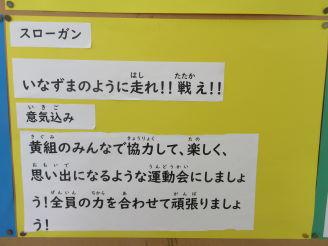 スローガン
いなずまのように走れ!!戦え!!
意気込み
黄組のみんなで協力して、楽しく、
思い出になるような運動会にしましょ
う!全員の力を合わせて頑張りましょ
う!